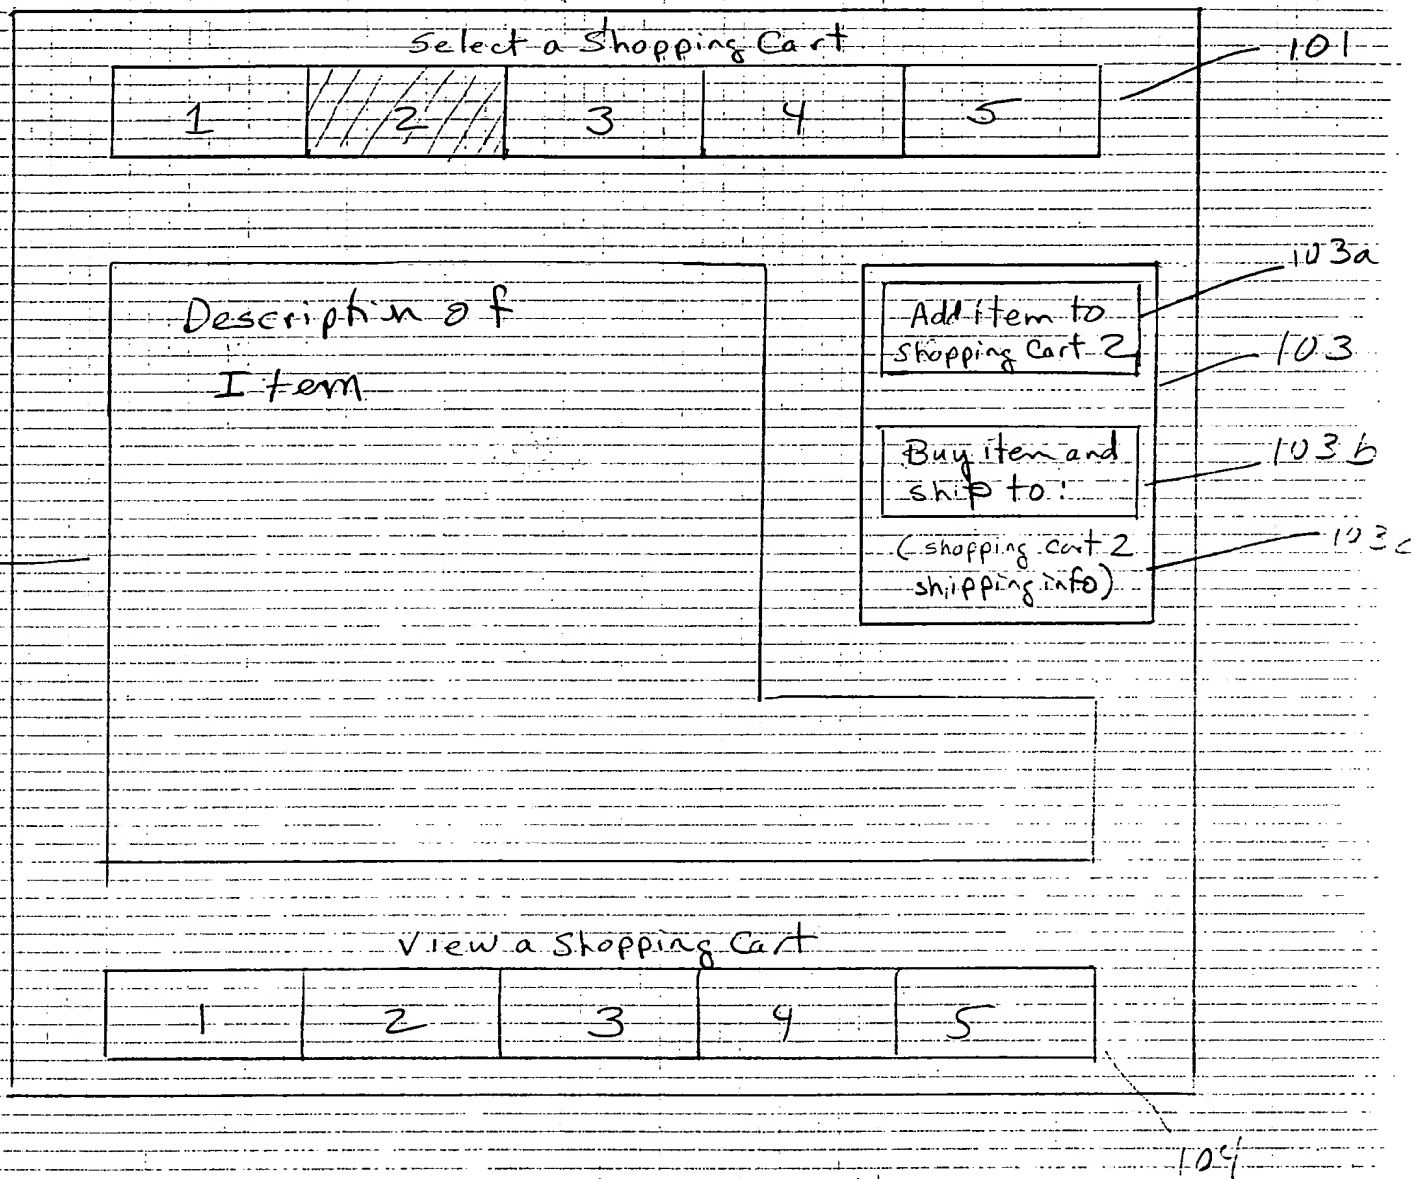 Select a Shopping Cart
101
1 2 3 4 5
103a
Description of
Item
Add item to
shopping Cart 2
103
Buy item and
ship to:
103b
(shopping cart 2
shipping info)
103c
View a Shopping Cart
1 2 3 4 5
104